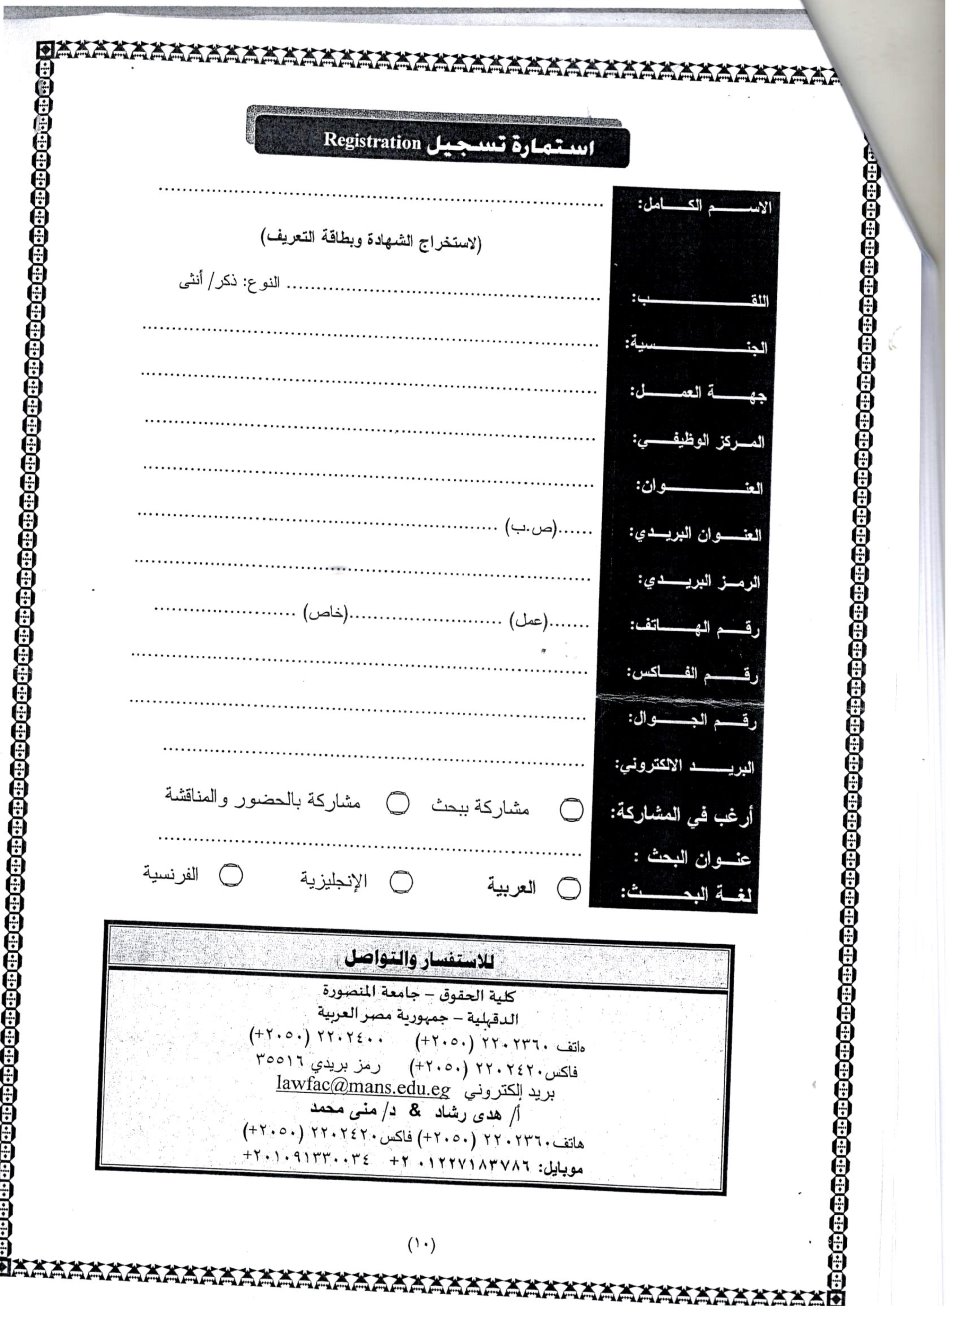 استمارة تسجيل Registration
الاسم الكامل: ........................................
(لاستخراج الشهادة وبطاقة التعريف)
اللقب: ........................................ النوع: ذكر/ أنثى
الجنسية: ........................................
جهة العمل: ........................................
المركز الوظيفي: ........................................
العنوان: ........................................
العنوان البريدي: ......(ص.ب) ........................................
الرمز البريدي: ........................................
رقم الهاتف: .......(عمل) ..........................(خاص) ........................
رقم الفاكس: ........................................
رقم الجوال: ........................................
البريد الالكتروني: ........................................
أرغب في المشاركة: مشاركة ببحث مشاركة بالحضور والمناقشة
عنوان البحث : ........................................
لغة البحث: العربية الإنجليزية الفرنسية
للاستفسار والتواصل
كلية الحقوق – جامعة المنصورة
الدقهلية – جمهورية مصر العربية
هاتف ٢٢٠٢٣٦٠ (٢٠٥٠+) ٢٢٠٢٤٠٠ (٢٠٥٠+)
فاكس ٢٢٠٢٤٢٠ (٢٠٥٠+) رمز بريدي ٣٥٥١٦
بريد إلكتروني lawfac@mans.edu.eg
أ/ هدى رشاد & د/ منى محمد
هاتف ٢٢٠٢٣٦٠ (٢٠٥٠+) فاكس ٢٢٠٢٤٢٠ (٢٠٥٠+)
موبايل: ٠١٢٢٧١٨٣٧٨٦ ٢+ ٢٠١٠٩١٣٣٠٠٣٤+
(١٠)